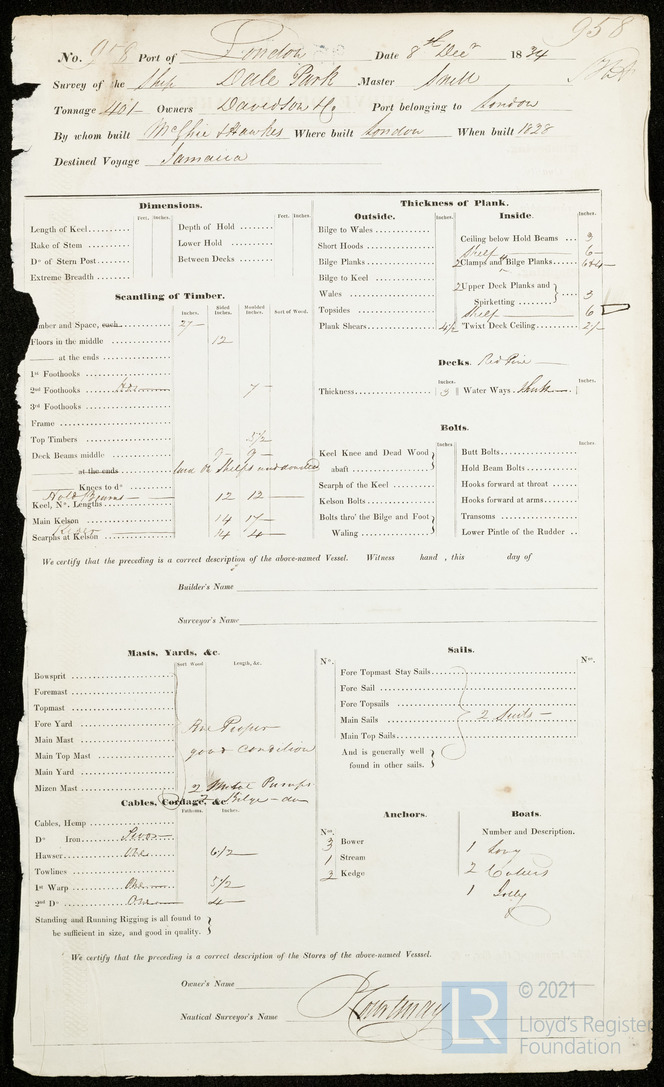 958
No. 958 Port of London Date 8th Decr 1834
Survey of the Ship Dale Park Master Snell
Tonnage 401 Owners Davidson & Co Port belonging to London
By whom built McGhie & Hawkes Where built London When built 1828
Destined Voyage Jamaica
Dimensions.
Feet. Inches. Feet. Inches.
Length of Keel
Rake of Stem
Do of Stern Post
Extreme Breadth
Depth of Hold
Lower Hold
Between Decks
Scantling of Timber.
Inches. Sided Inches. Moulded Inches. Sort of Wood.
Timber and Space, each 27
Floors in the middle 12
at the ends
1st Foothooks
2nd Foothooks 7
3rd Foothooks
Frame
Top Timbers 5 1/2
Deck Beams middle 9 9
at the ends
Knees to do
Hold Beams 12 12
Keel, No. Lengths
Main Kelson 14 17
Scarphs at Kelson 14 14
Thickness of Plank.
Outside.
Bilge to Wales
Short Hoods
Bilge Planks
Bilge to Keel
Wales
Topsides
Plank Shears 4 1/2
Inside.
Inches.
Ceiling below Hold Beams 3
Shelf 6
2 Clamps and Bilge Planks 6 & 4
2 Upper Deck Planks and
Spirketting 3
Shelf 6
'Twixt Deck Ceiling 2 1/2
Decks. Red Pine
Inches. Inches.
Thickness 3 Water Ways
Bolts.
Inches Inches.
Keel Knee and Dead Wood
abaft
Scarph of the Keel
Kelson Bolts
Bolts thro' the Bilge and Foot
Waling
Butt Bolts
Hold Beam Bolts
Hooks forward at throat
Hooks forward at arms
Transoms
Lower Pintle of the Rudder
We certify that the preceding is a correct description of the above-named Vessel. Witness hand , this day of
Builder's Name
Surveyor's Name
Masts, Yards, &c.
Sort Wood Length, &c.
Bowsprit
Foremast
Topmast
Fore Yard
Main Mast
Main Top Mast
Main Yard
Mizen Mast
Are Proper
good condition
2 Metal Pumps
2 Bilge do
Sails.
No. Nos.
Fore Topmast Stay Sails
Fore Sail
Fore Topsails
Main Sails
Main Top Sails
2 Suits
And is generally well
found in other sails.
Cables, Cordage, &c
Fathoms. Inches.
Cables, Hemp
Do Iron
Hawser One 6 1/2
Towlines
1st Warp One 5 1/2
2nd Do One 4
Standing and Running Rigging is all found to
be sufficient in size, and good in quality.
Anchors.
Nos.
3 Bower
1 Stream
3 Kedge
Boats.
Number and Description.
1 Long
2 Cutters
1 Jolly
We certify that the preceding is a correct description of the Stores of the above-named Vesssel.
Owner's Name
Nautical Surveyor's Name Courtenay
LR © 2021
Lloyd's Register
Foundation